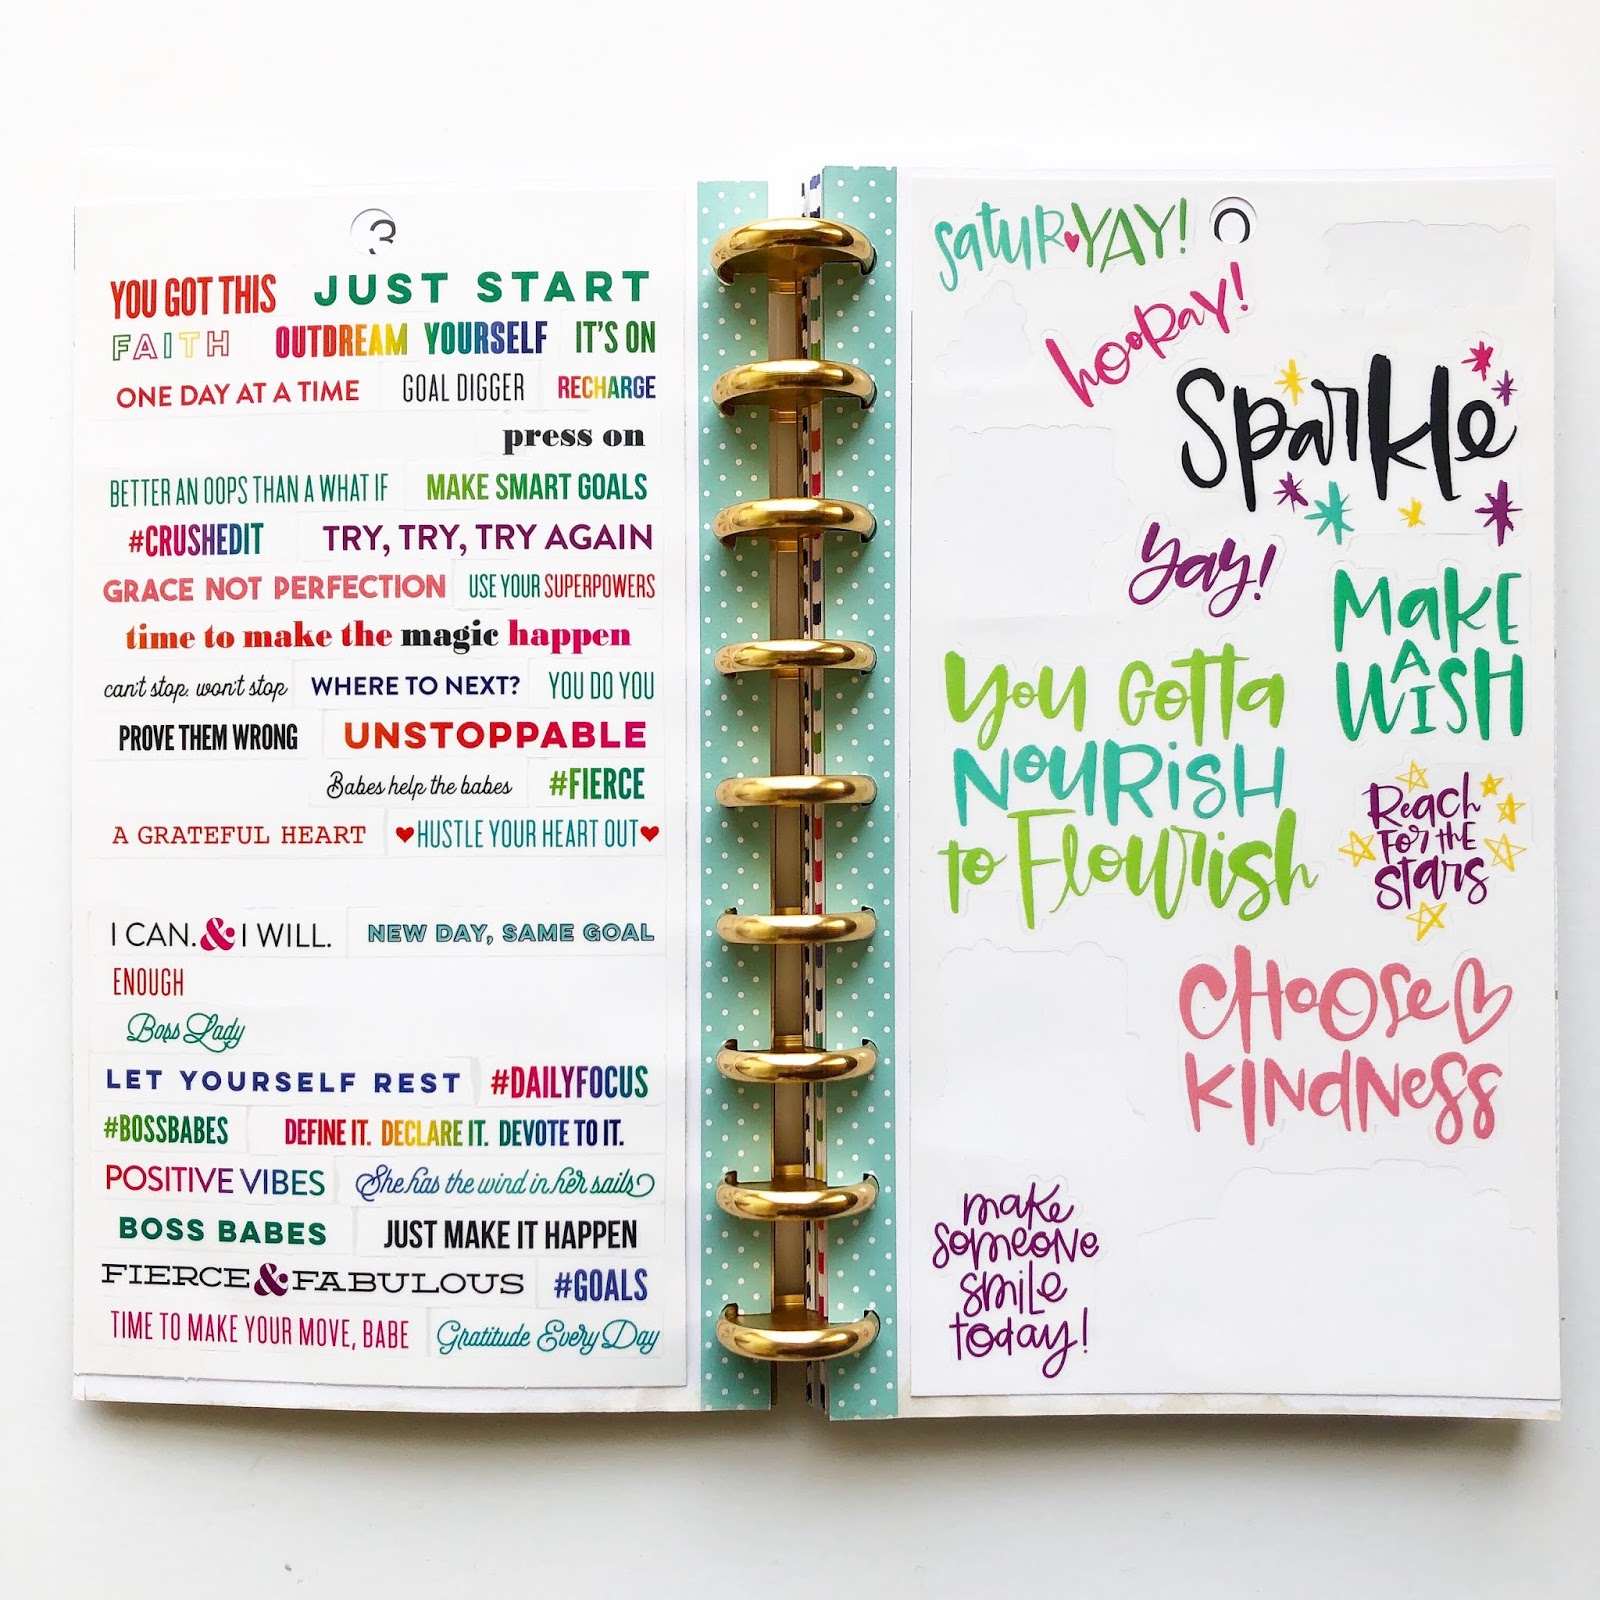 3
YOU GOT THIS JUST START
FAITH OUTDREAM YOURSELF IT'S ON
ONE DAY AT A TIME GOAL DIGGER RECHARGE
press on
BETTER AN OOPS THAN A WHAT IF MAKE SMART GOALS
#CRUSHEDIT TRY, TRY, TRY AGAIN
GRACE NOT PERFECTION USE YOUR SUPERPOWERS
time to make the magic happen
can't stop. won't stop WHERE TO NEXT? YOU DO YOU
PROVE THEM WRONG UNSTOPPABLE
Babes help the babes #FIERCE
A GRATEFUL HEART HUSTLE YOUR HEART OUT
I CAN. & I WILL. NEW DAY, SAME GOAL
ENOUGH
Boss Lady
LET YOURSELF REST #DAILYFOCUS
#BOSSBABES DEFINE IT. DECLARE IT. DEVOTE TO IT.
POSITIVE VIBES She has the wind in her sails
BOSS BABES JUST MAKE IT HAPPEN
FIERCE & FABULOUS #GOALS
TIME TO MAKE YOUR MOVE, BABE Gratitude Every Day
SATURYAY!
hooray!
Sparkle
yay!
MAKE
A
WISH
You Gotta
Nourish
to Flourish
Reach
FOR THE
Stars
CHOOSE
KINDNESS
make
someone
smile
today!